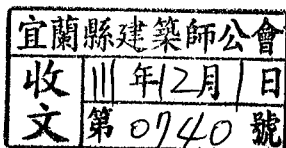 宜蘭縣建築師公會
收文 111年12月1日
第0740號